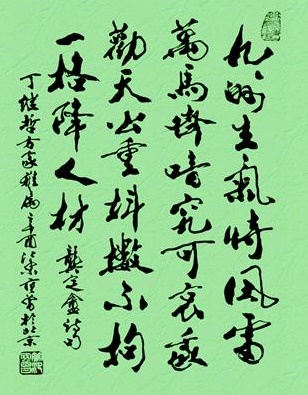 九州生氣恃風雷
萬馬齊喑究可哀我
勸天公重抖擻不拘
一格降人材 龔定盦詩句
方家雅屬辛酉江東范曾於北京